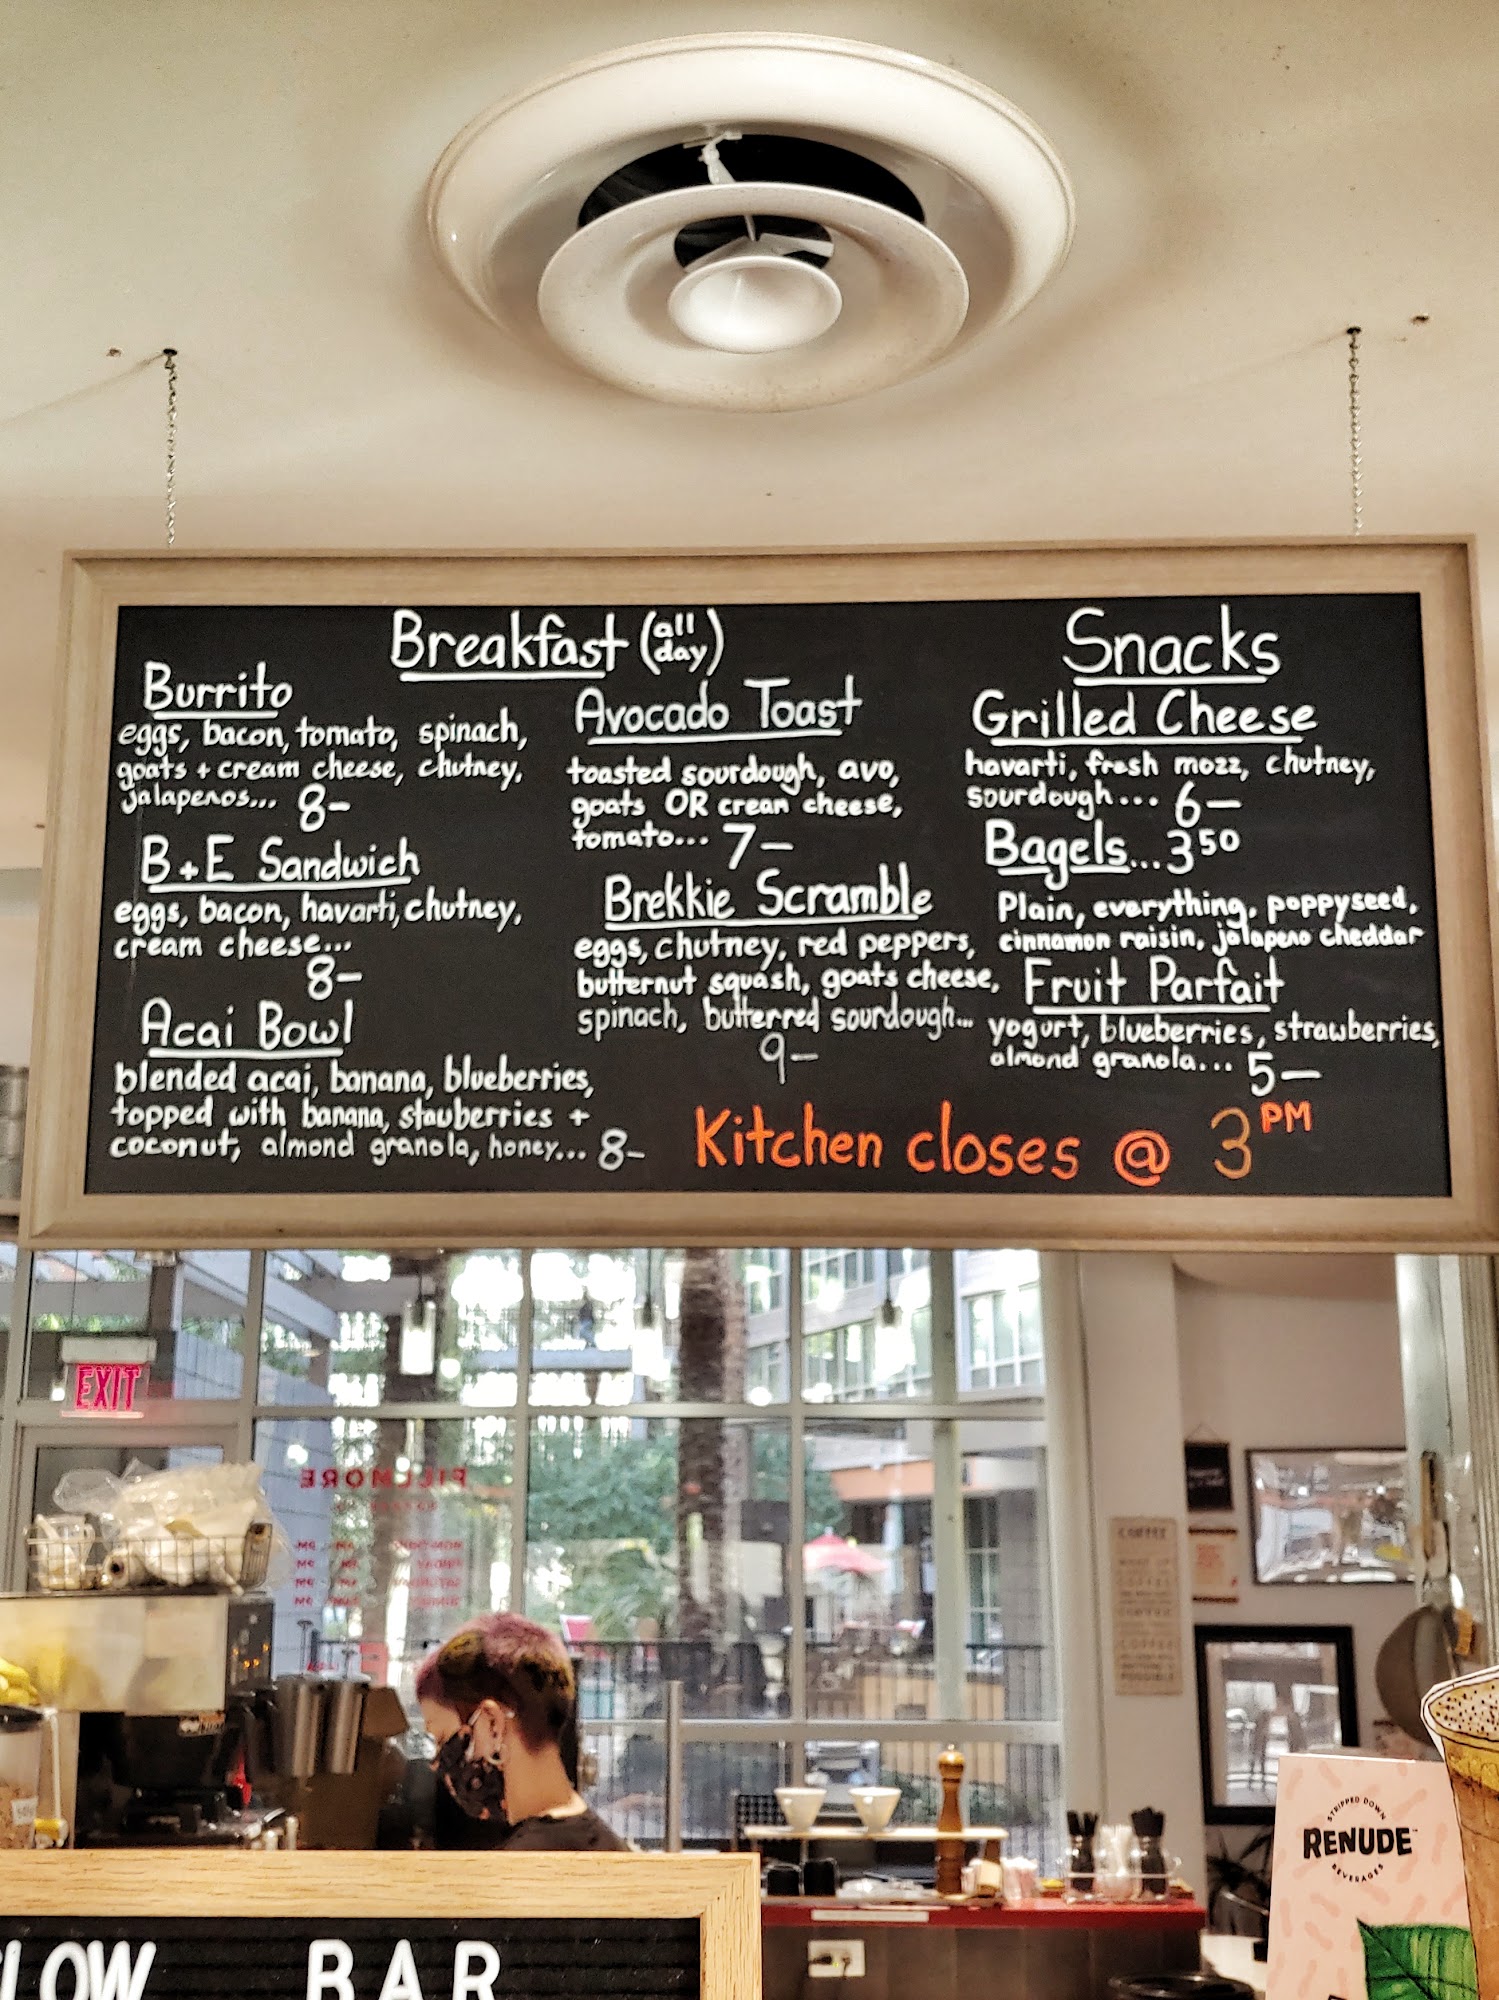 Breakfast (all day)
Burrito
eggs, bacon, tomato, spinach,
goats + cream cheese, chutney,
jalapenos... 8-
B+E Sandwich
eggs, bacon, havarti, chutney,
cream cheese...
8-
Acai Bowl
blended acai, banana, blueberries,
topped with banana, stauberries +
coconut, almond granola, honey... 8-
Avocado Toast
toasted sourdough, avo,
goats OR cream cheese,
tomato... 7-
Brekkie Scramble
eggs, chutney, red peppers,
butternut squash, goats cheese,
spinach, butterred sourdough...
9-
Snacks
Grilled Cheese
havarti, fresh mozz, chutney,
sourdough... 6-
Bagels...3 50
Plain, everything, poppyseed,
cinnamon raisin, jalapeno cheddar
Fruit Parfait
yogurt, blueberries, strawberries,
almond granola... 5-
Kitchen closes @ 3 PM
EXIT
FILLMORE
COFFEE
STRIPPED DOWN
RENUDE
BEVERAGES
LOW BAR